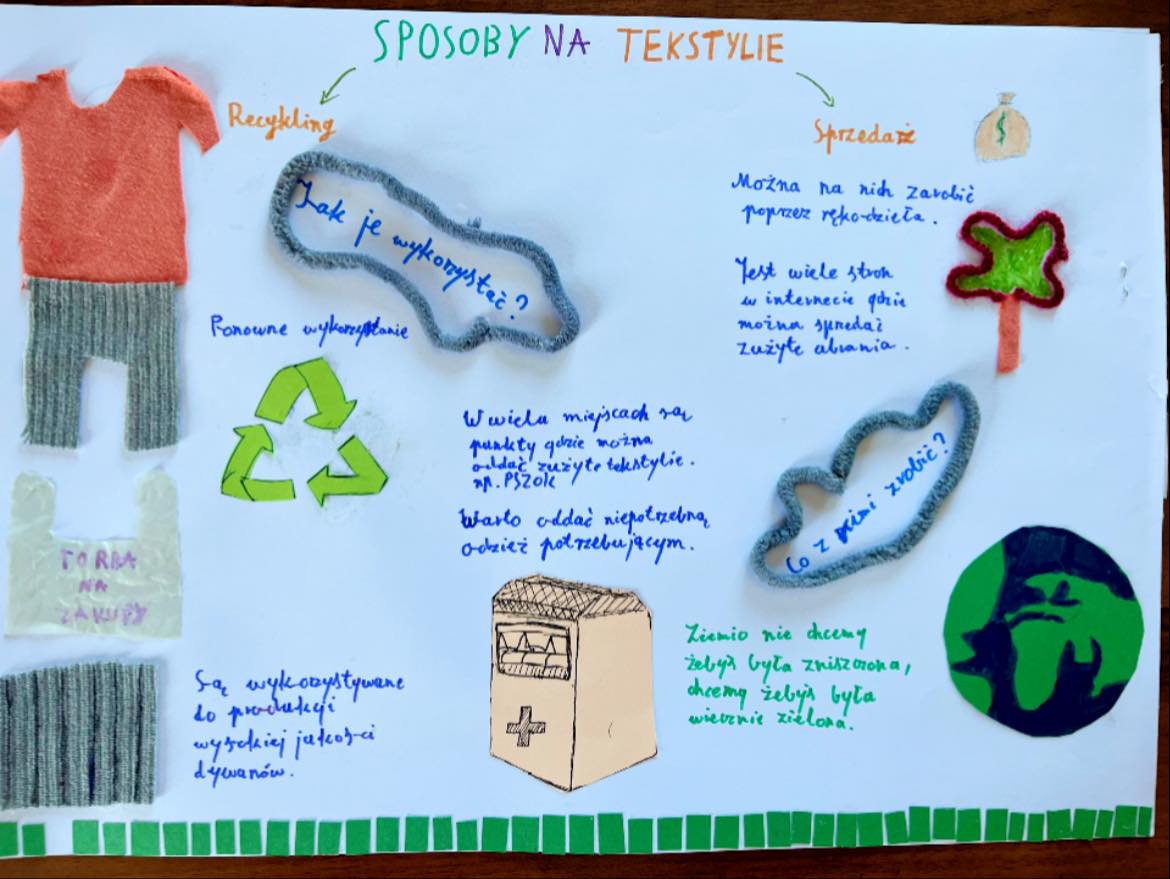 SPOSOBY NA TEKSTYLIE
Recykling
Jak je wykorzystać?
Ponowne wykorzystanie
W wielu miejscach są
punkty gdzie można
oddać zużyte tekstylie.
np. PSZOK
Warto oddać niepotrzebną
odzież potrzebującym.
TORBA
NA
ZAKUPY
Są wykorzystywane
do produkcji
wysokiej jakości
dywanów.
Sprzedaż
$
Można na nich zarobić
poprzez rękodzieła.
Jest wiele stron
w internecie gdzie
można sprzedać
zużyte ubrania.
Co z nimi zrobić?
Ziemio nie chcemy
żebyś była zniszczona,
chcemy żebyś była
wiecznie zielona.